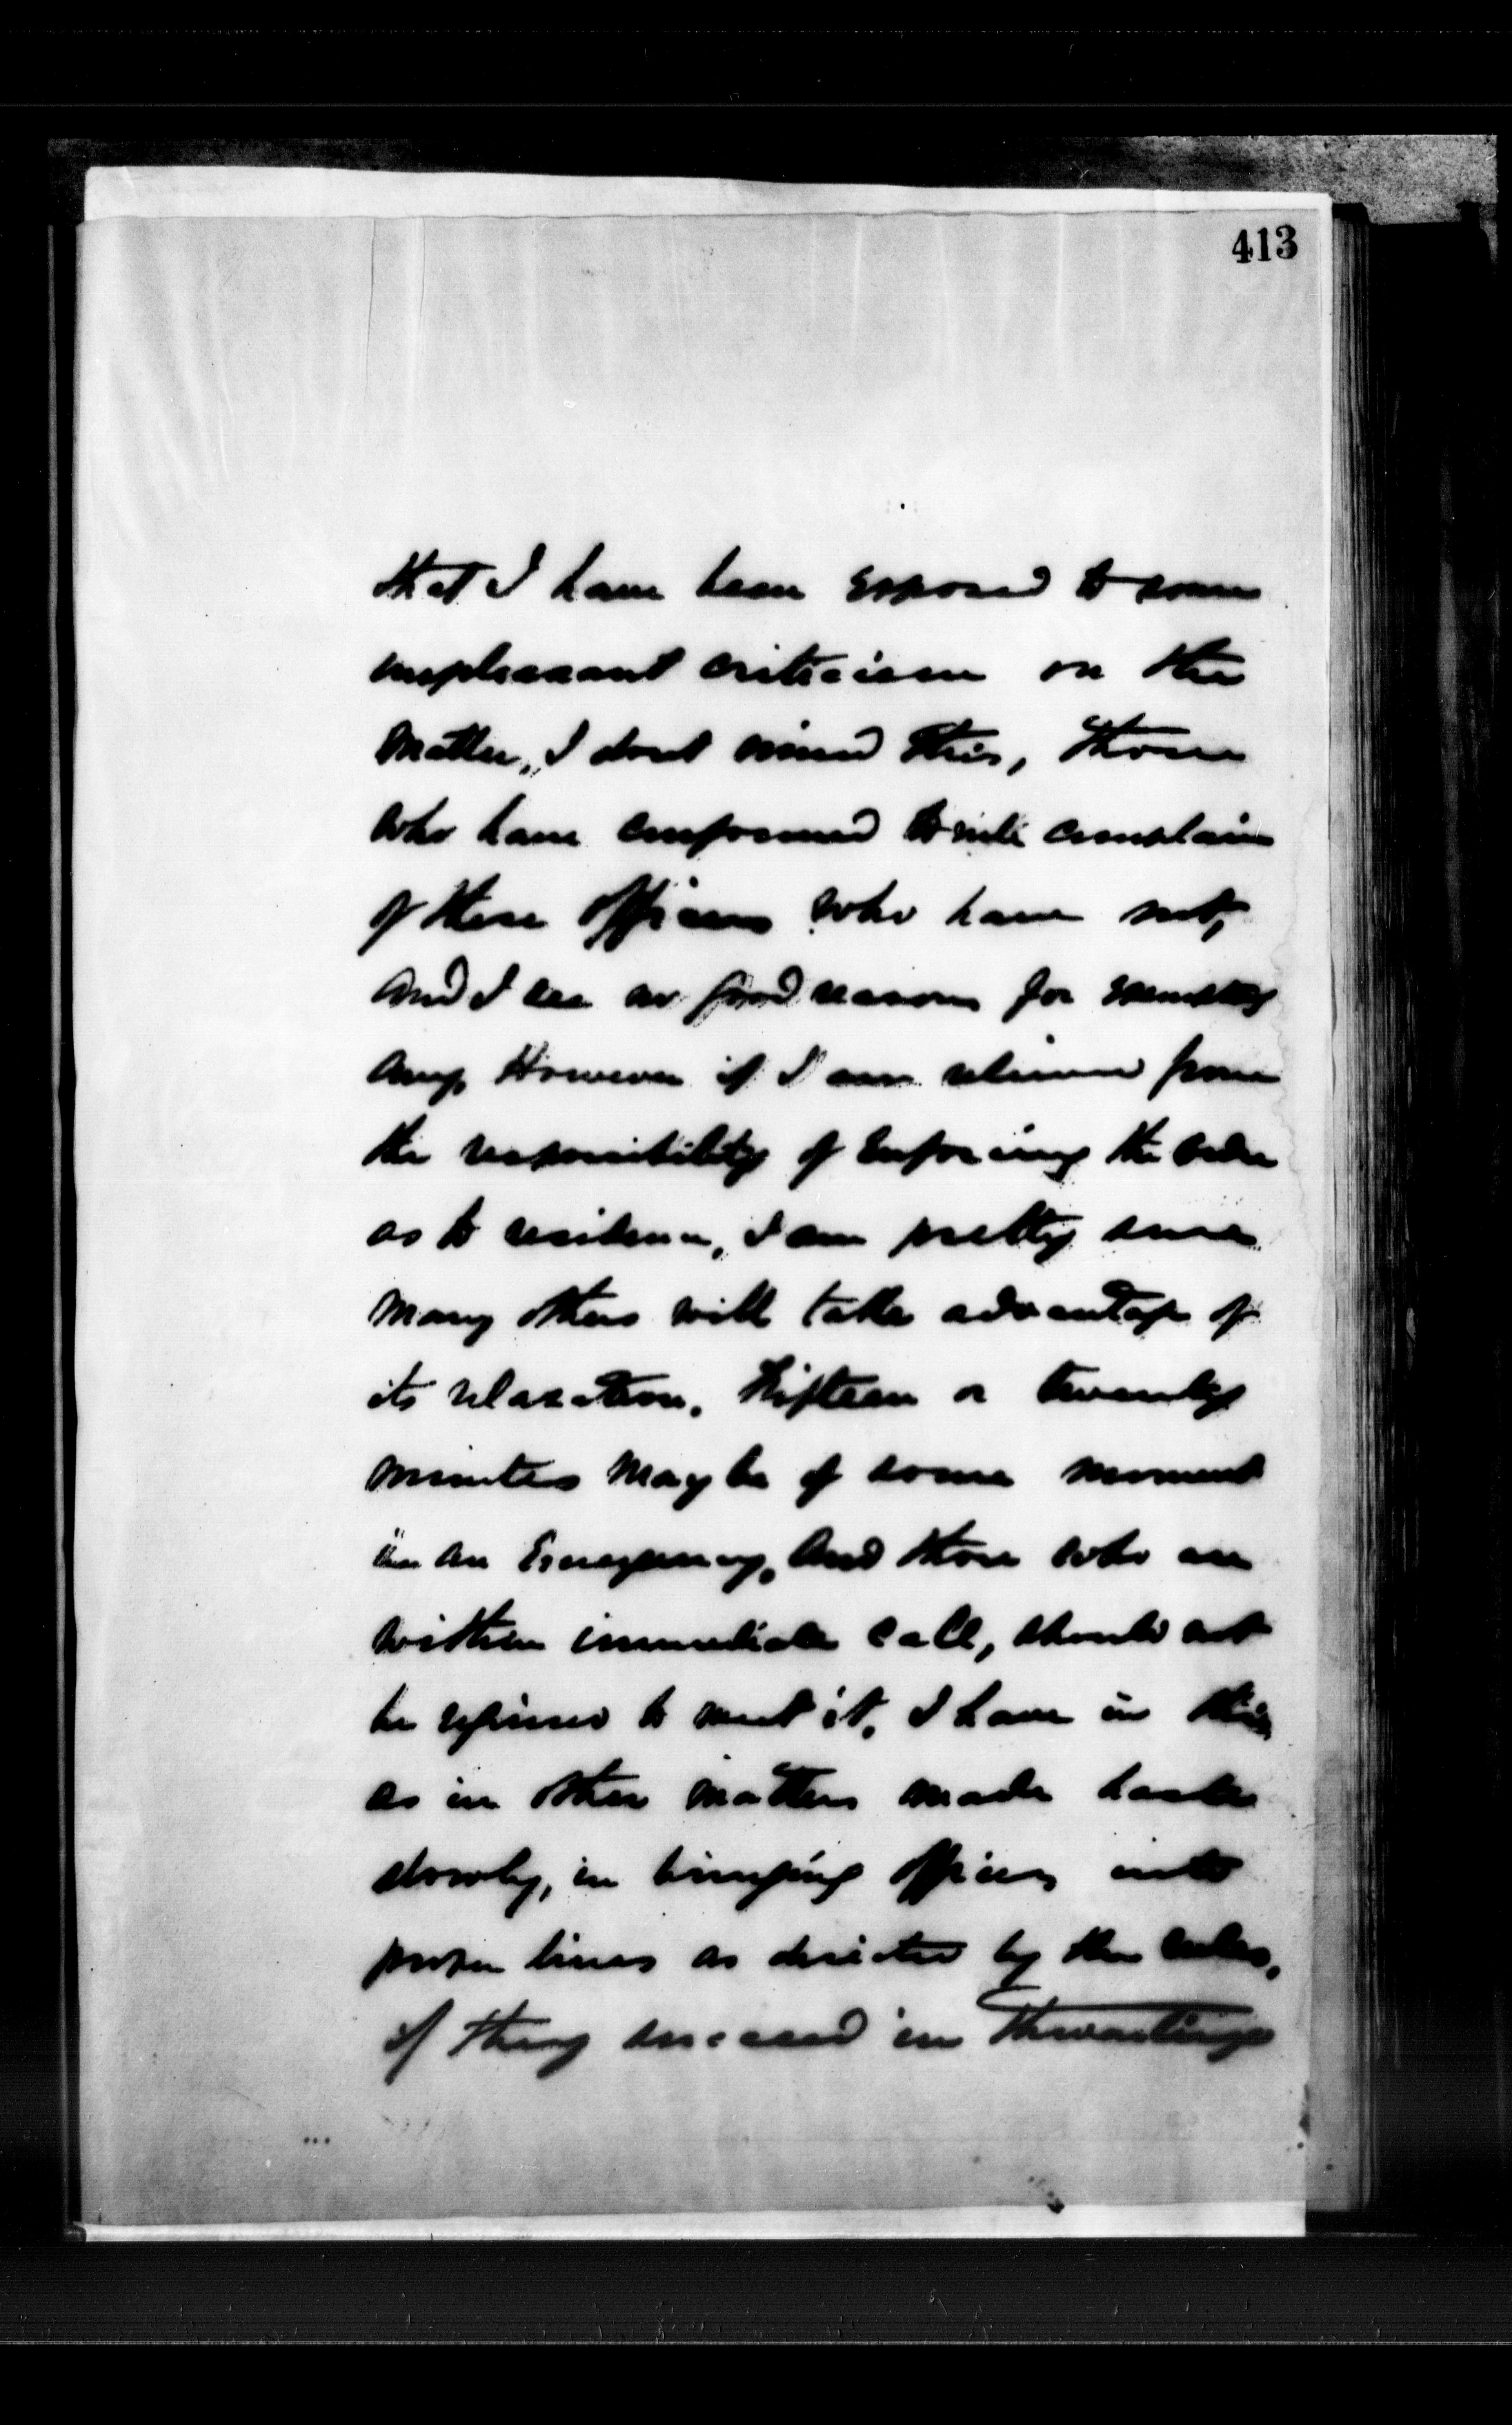 413
that I have been exposed to some
unpleasant criticism on the
matter, I dont mind this, those
who have conformed to rule complain
of these officers who have not,
and I see no good reasons for exempting
any. However if I am relieved from
the responsibility of enforcing the rule
as to residence, I am pretty sure
many others will take advantage of
its relaxation. Fifteen or twenty
minutes may be of some moment
in an Emergency, and those who are
within immediate call, should not
be required to meet it. I have in this
as in other matters made haste
slowly, in bringing officers into
proper lines as directed by the rules,
if they succeed in thwarting